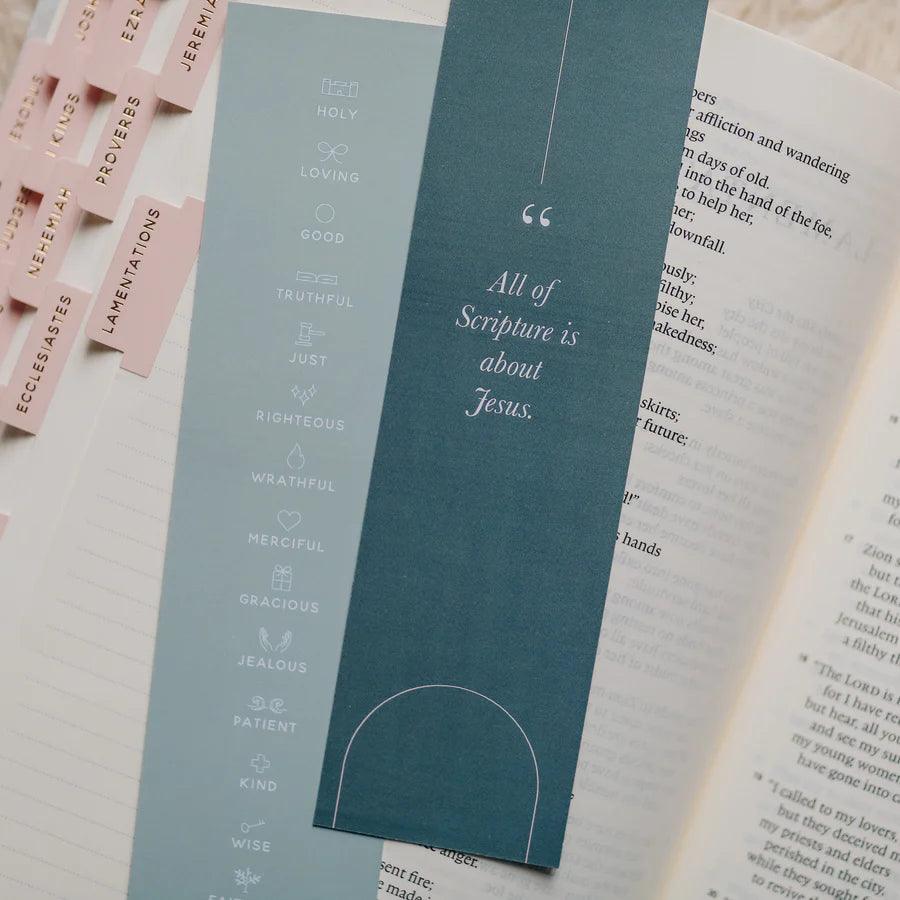 JOSH
EZRA
JEREMIA
EXODUS
1 KINGS
PROVERBS
JUDGE
NEHEMIAH
LAMENTATIONS
ECCLESIASTES
HOLY
LOVING
GOOD
TRUTHFUL
JUST
RIGHTEOUS
WRATHFUL
MERCIFUL
GRACIOUS
JEALOUS
PATIENT
KIND
WISE
“
All of
Scripture is
about
Jesus.
affliction and wandering
m days of old.
into the hand of the foe,
to help her,
her;
downfall.
ously;
filthy;
oise her,
akedness;
skirts;
r future;
d!”
s hands
anger.
sent fire;
e made
my
fo
17 Zion s
but t
the LOR
that his
Jerusalem
a filthy th
18 “The LORD is
for I have re
but hear, all you
and see my su
my young women
have gone into ca
19 “I called to my lovers,
but they deceived m
my priests and elders
perished in the city,
while they sought f
to revive the